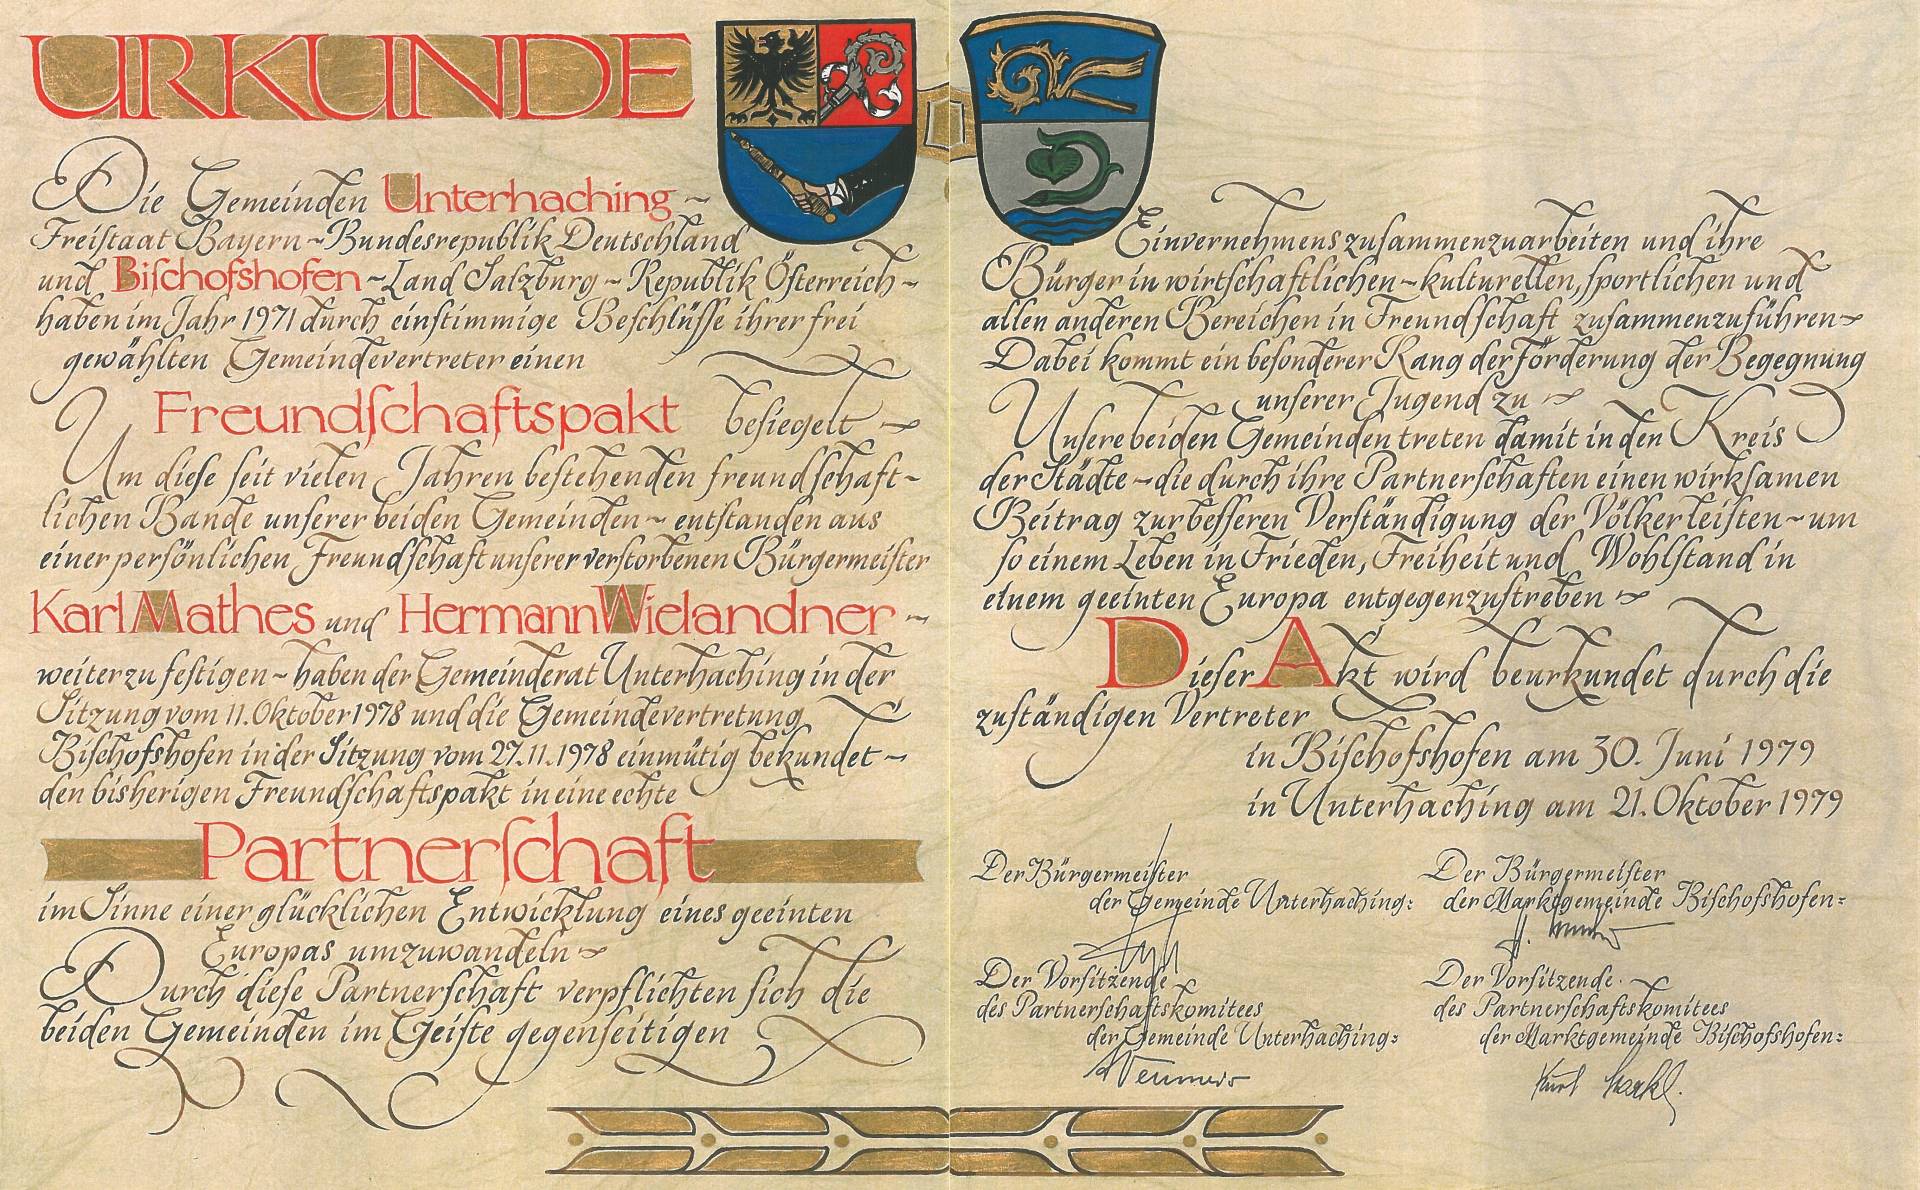 URKUNDE
Die Gemeinden Unterhaching ~
Freiſtaat Bayern ~ Bundesrepublik Deutschland
und Biſchofshofen ~ Land Salzburg ~ Republik Öſterreich ~
haben im Jahr 1971 durch einſtimmige Beſchlüſſe ihrer frei
gewählten Gemeindevertreter einen
Freundſchaftspakt beſiegelt ~
Um dieſe ſeit vielen Jahren beſtehenden freundſchaft~
lichen Bande unſerer beiden Gemeinden ~ entſtanden aus
einer perſönlichen Freundſchaft unſerer verſtorbenen Bürgermeiſter
Karl Mathes und Hermann Wielandner ~
weiter zu feſtigen ~ haben der Gemeinderat Unterhaching in der
Sitzung vom 11. Oktober 1978 und die Gemeindevertretung
Biſchofshofen in der Sitzung vom 27.11.1978 einmütig bekundet ~
den bisherigen Freundſchaftspakt in eine echte
Partnerſchaft
im Sinne einer glücklichen Entwicklung eines geeinten
Europas umzuwandeln ~
Durch dieſe Partnerſchaft verpflichten ſich die
beiden Gemeinden im Geiſte gegenſeitigen
Einvernehmens zuſammenzuarbeiten und ihre
Bürger in wirtſchaftlichen ~ kulturellen, ſportlichen und
allen anderen Bereichen in Freundſchaft zuſammenzuführen ~
Dabei kommt ein beſonderer Rang der Förderung der Begegnung
unſerer Jugend zu ~
Unſere beiden Gemeinden treten damit in den Kreis
der Städte ~ die durch ihre Partnerſchaften einen wirkſamen
Beitrag zur beſſeren Verſtändigung der Völker leiſten ~ um
ſo einem Leben in Frieden, Freiheit und Wohlſtand in
einem geeinten Europa entgegenzuſtreben ~
Dieſer Akt wird beurkundet durch die
zuſtändigen Vertreter
in Biſchofshofen am 30. Juni 1979
in Unterhaching am 21. Oktober 1979
Der Bürgermeiſter
der Gemeinde Unterhaching:
Der Bürgermeiſter
der Marktgemeinde Biſchofshofen:
Der Vorſitzende
des Partnerſchaftskomitees
der Gemeinde Unterhaching:
Der Vorſitzende
des Partnerſchaftskomitees
der Marktgemeinde Biſchofshofen:
Kurl